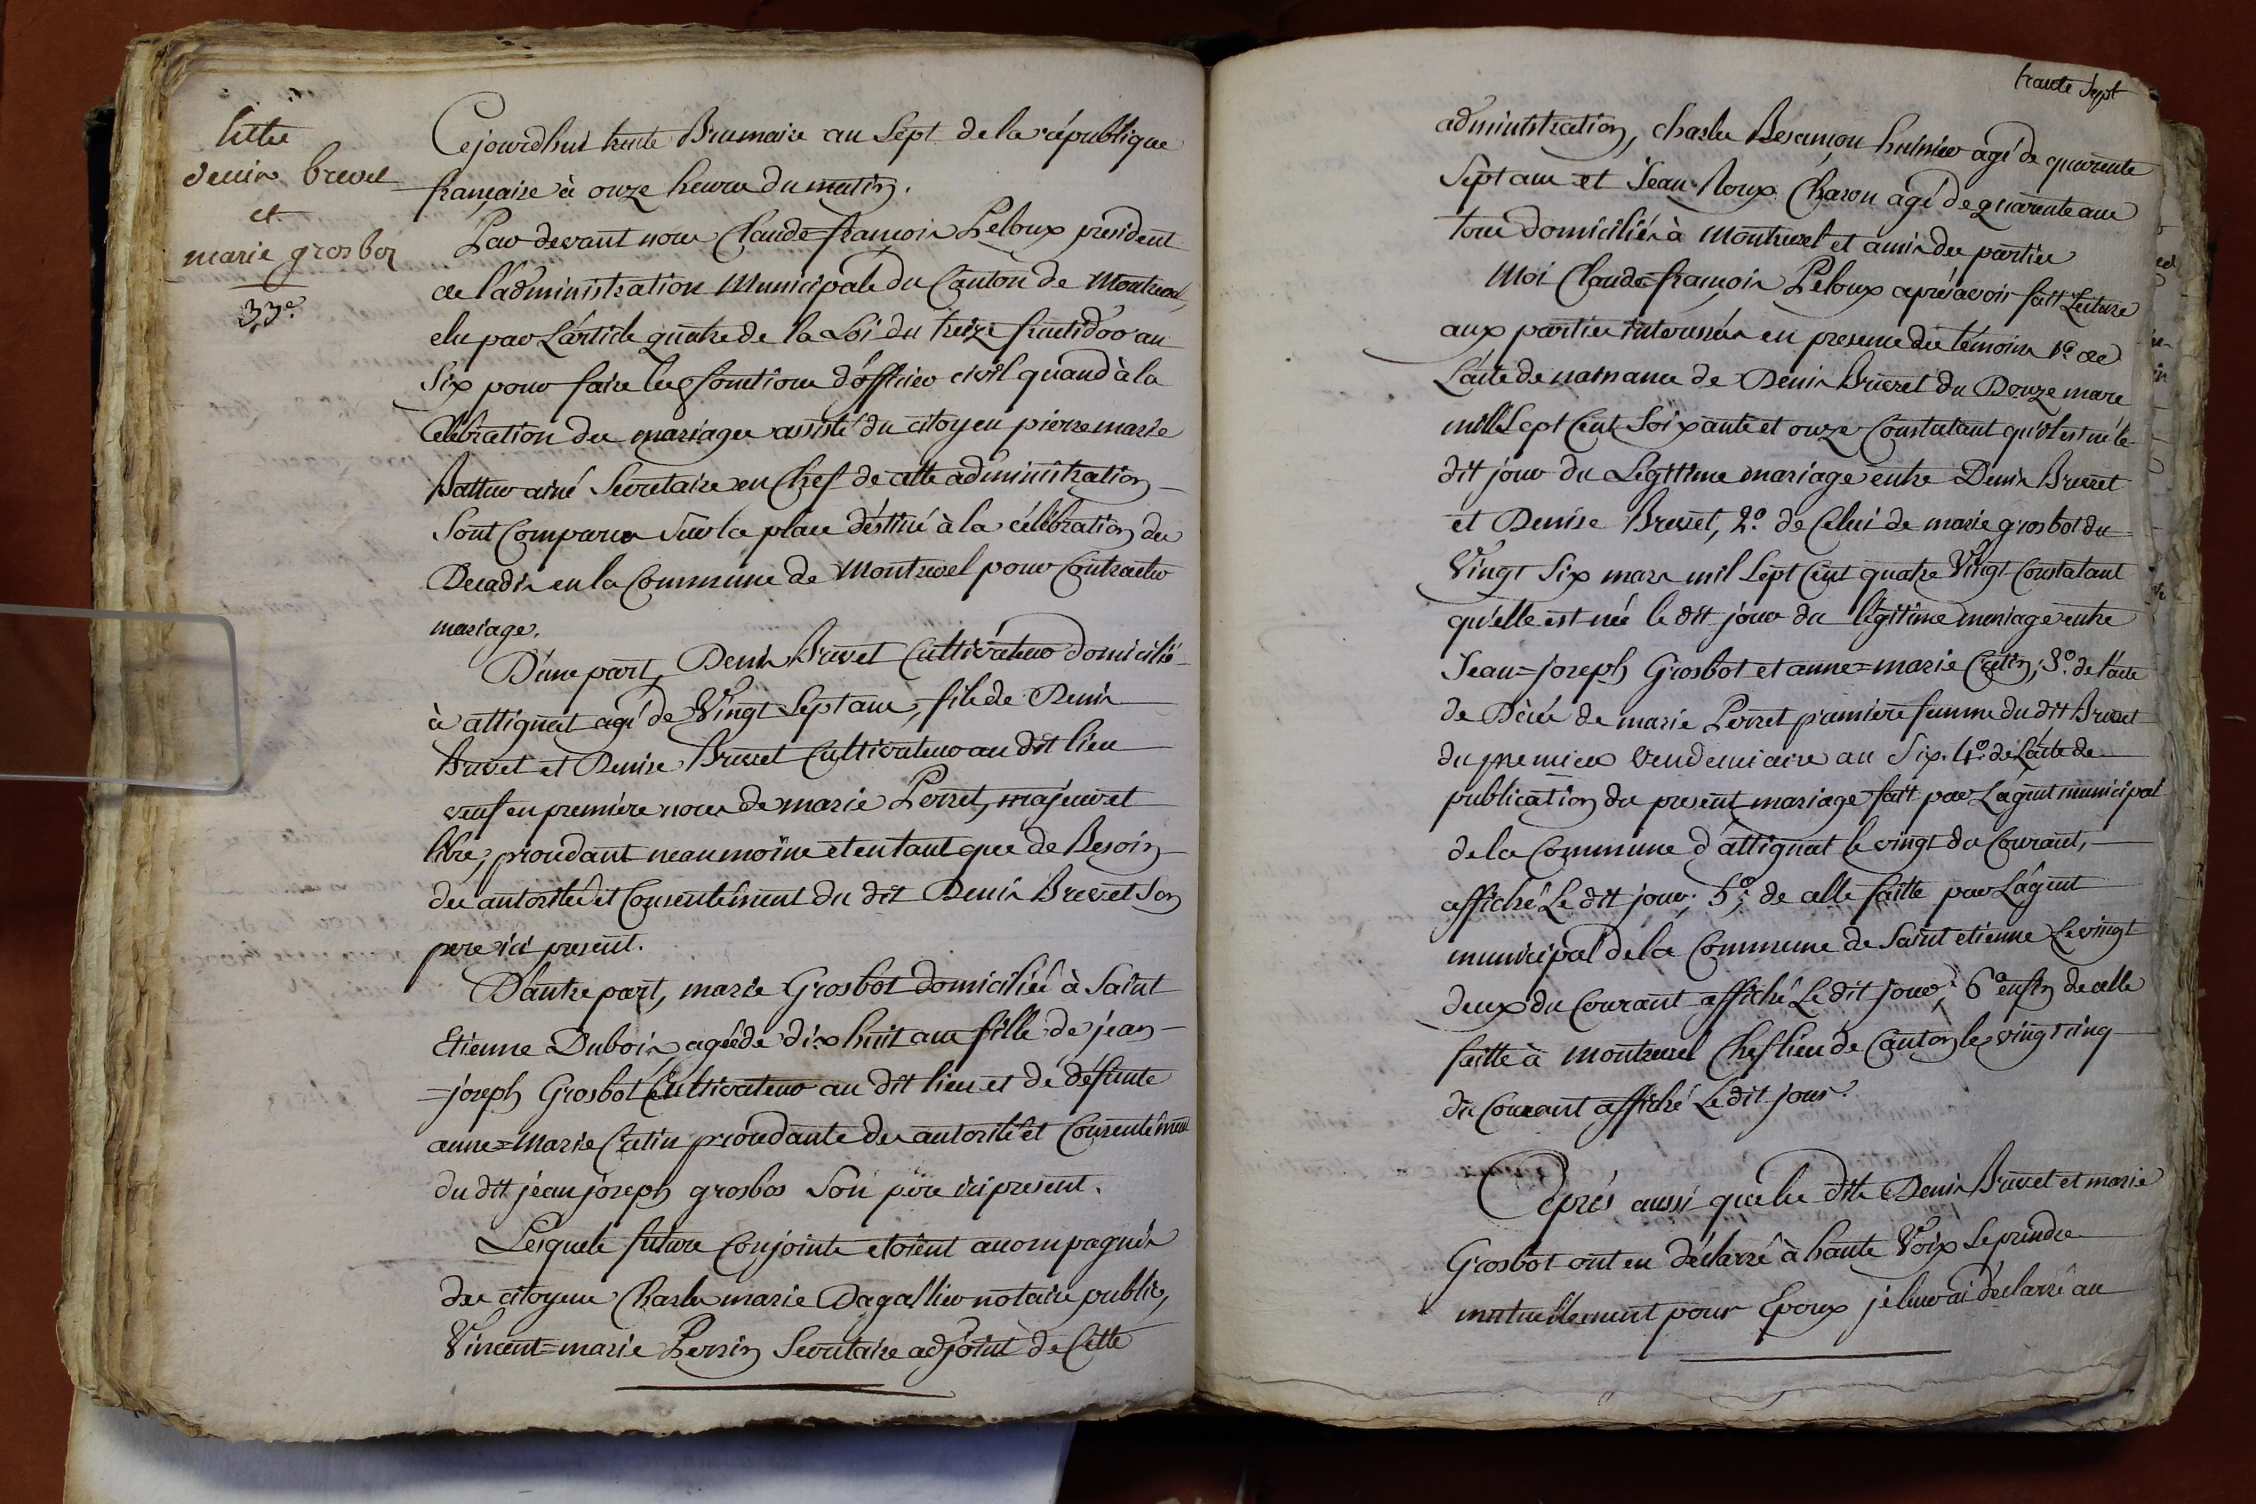 entre
denis brevet
et
marie grosboz
33e.
Cejourdhui trente Brumaire an Sept de la république
française à onze heures du matin.
Par devant nous Claude=françois Peloux président
de l'administration Municipale du Canton de Montrevel,
elu par L'article quatre de la Loi du treize fructidor an
Six pour faire les fonctions d'officier civil quand à la
Célébration des mariages assisté du citoyen pierre marie
ainé Secretaire en Chef de cette administration
Sont Comparus sur la place déstiné à la célébration des
Decadis en la Commune de Montrevel pour Contracter
mariage.
D'une part, Denis Brevet Cultivateur domicilié
à attignat agé de Vingt Sept ans, fils de Denis
Brevet et Denise Brevet Cultivateur au dit lieu
veuf en première noces de marie Perret, majeur et
libre, procédant néanmoins et en tant que de Besoin
des autorités et Consentement du dit Denis Brevet Son
pere ici présent.
D'autre part, marie Grosbot domiciliée à Saint
Etienne Dubois agée de dix huit ans fille de jean
=joseph Grosbot Cultivateur au dit lieu et de défunte
anne=Marie Catin procédante des autorité et Consentement
du dit jean joseph grosbos Son père ici présent.
Lesquels futurs Conjoints etoient accompagnés
des citoyens Charles marie Dagallier notaire public,
Vincent=marie Perrin Secretaire adjoint de Cette
trente Sept
administration, charles Besançon huissier agé de quarente
Sept ans et Jean Roux Charon agé de quarente ans
tous domiciliés à Montrevel et amis des parties
Moi Claude=françois Peloux après avoir fait Lecture
aux parties interessées en presence des témoins 1o. de
L'acte de naissance de Denis Brevet du Douze mars
mille Sept Cent Soixante et onze Constatant qu'il est né le
dit jour du Légitime mariage entre Denis Brevet
et Denise Brevet, 2o. de Celui de marie grosbot du
Vingt Six mars mil Sept Cent quatre Vingt Constatant
qu'elle est née le dit jour du légitime mariage entre
Jean=joseph Grosbot et anne=marie Catin; 3o. de l'acte
de Décés de marie Perret premiere femme du dit Brevet
du premier Vendemiaire an Six. 4o. de L'acte de
publication du present mariage fait par L'agent municipal
de la Commune d'attignat le vingt du Courant,
affiché Le dit jour; 5o. de celle faitte par L'agent
municipal de la Commune de Saint etienne Le vingt
deux du Courant affiché Le dit jour; 6o enfin de celle
faitte à Montrevel Chef lieu de Canton le vingt cinq
du Courant affiché Le dit jour.
Après aussi que les dits Denis Brevet et marie
Grosbot ont eu déclarré à haute Voix Se prendre
mutuellement pour Epoux déclarré au